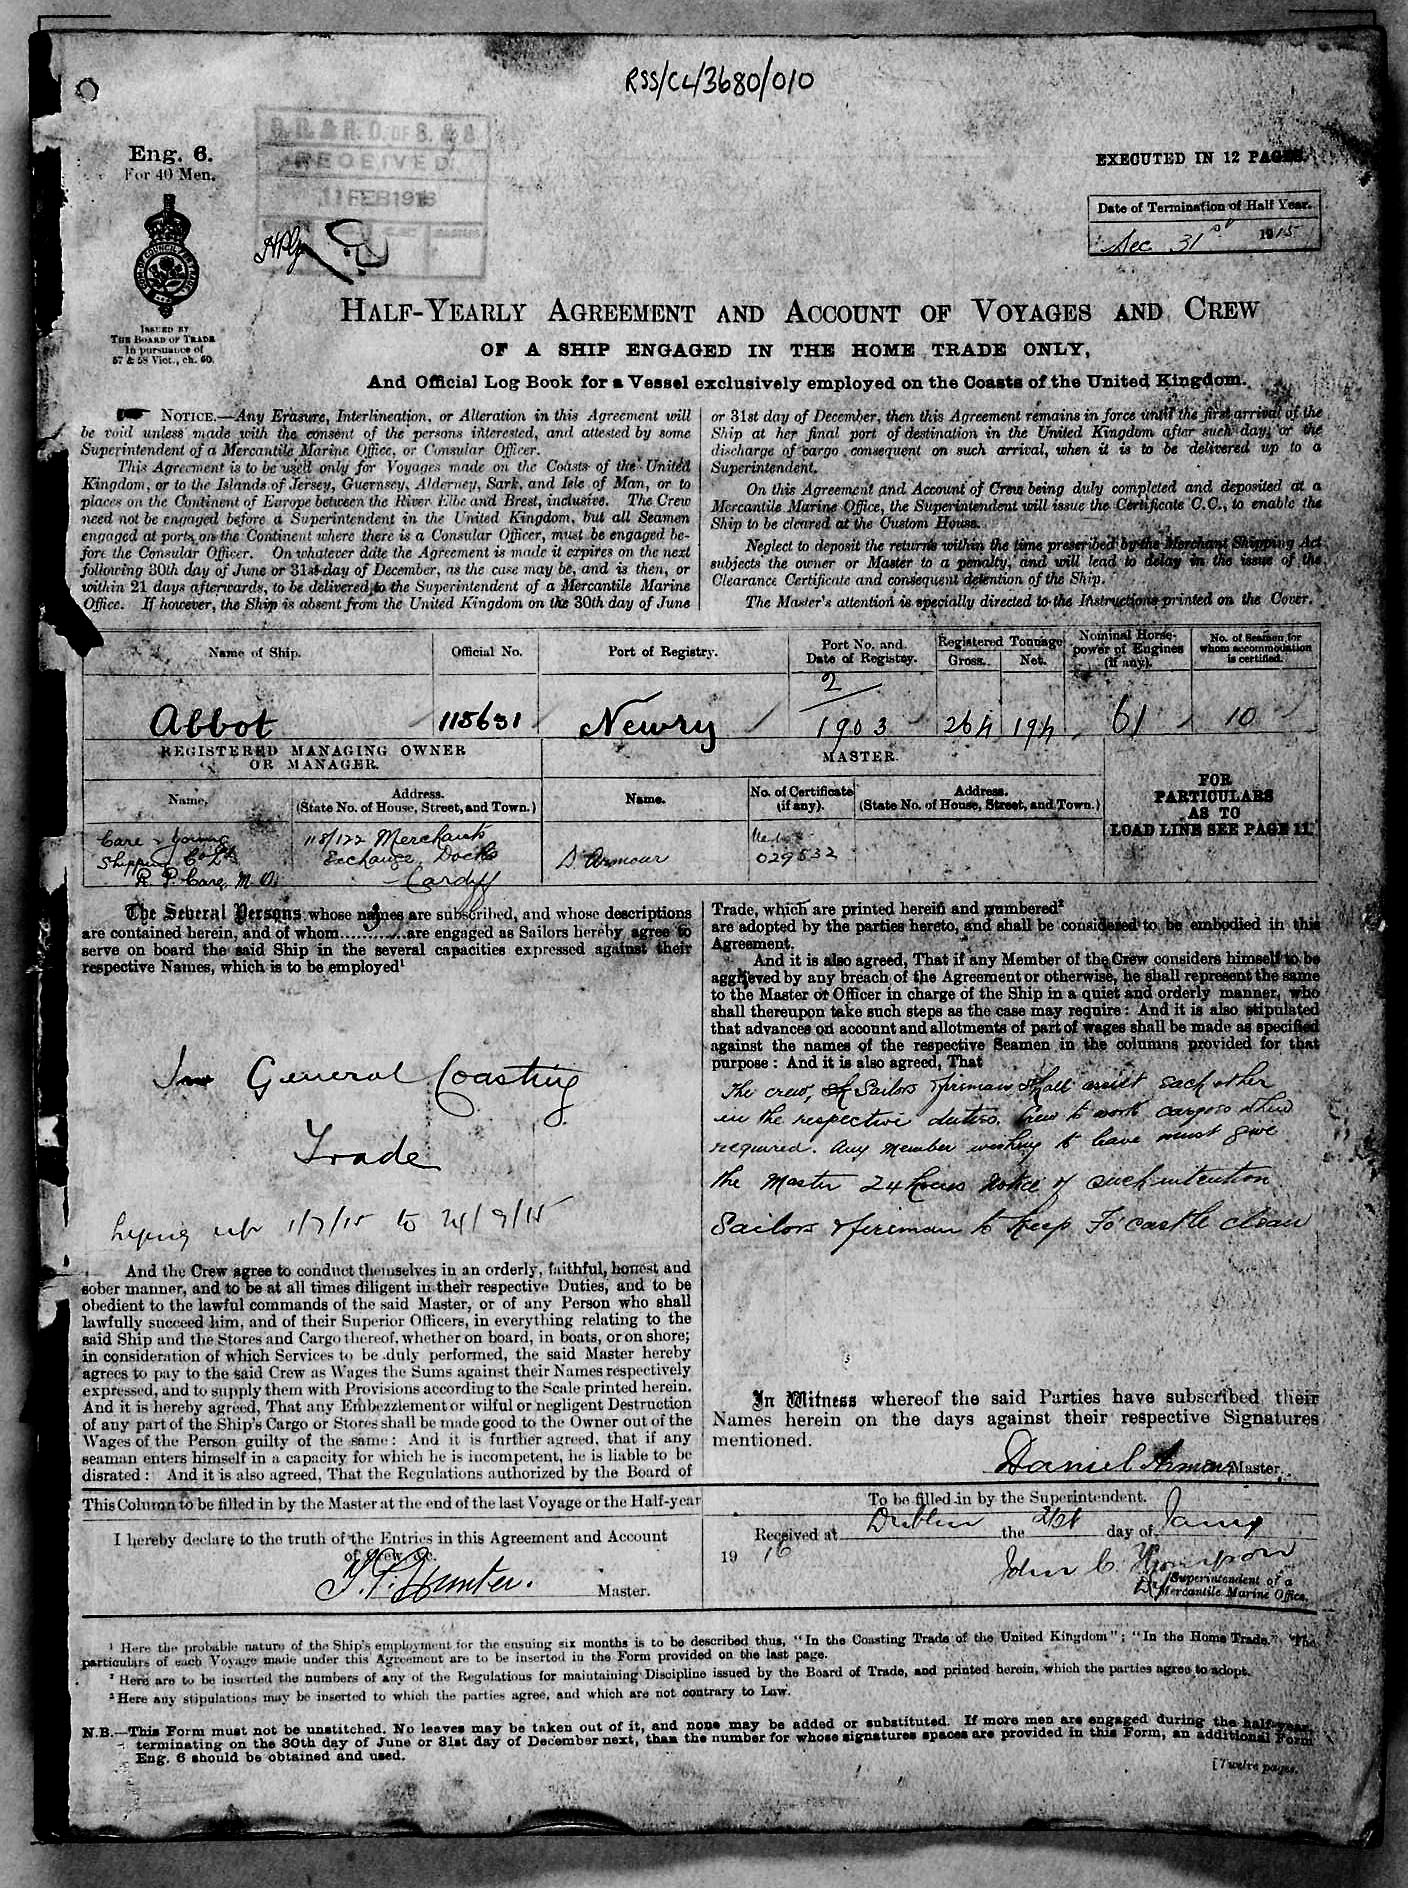 RSS/CL/3680/010
RECEIVED
11 FEB 1916
Eng. 6.
For 40 Men.
EXECUTED IN 12 PAGES.
Date of Termination of Half Year.
Dec 31st 1915
ISSUED BY
THE BOARD OF TRADE
In pursuance of
57 & 58 Vict., ch. 60.
HALF-YEARLY AGREEMENT AND ACCOUNT OF VOYAGES AND CREW
OF A SHIP ENGAGED IN THE HOME TRADE ONLY,
And Official Log Book for a Vessel exclusively employed on the Coasts of the United Kingdom.
NOTICE.—Any Erasure, Interlineation, or Alteration in this Agreement will
be void unless made with the consent of the persons interested, and attested by some
Superintendent of a Mercantile Marine Office, or Consular Officer.
This Agreement is to be used only for Voyages made on the Coasts of the United
Kingdom, or to the Islands of Jersey, Guernsey, Alderney, Sark, and Isle of Man, or to
places on the Continent of Europe between the River Elbe and Brest, inclusive. The Crew
need not be engaged before a Superintendent in the United Kingdom, but all Seamen
engaged at ports on the Continent where there is a Consular Officer, must be engaged be-
fore the Consular Officer. On whatever date the Agreement is made it expires on the next
following 30th day of June or 31st day of December, as the case may be, and is then, or
within 21 days afterwards, to be delivered to the Superintendent of a Mercantile Marine
Office. If however, the Ship is absent from the United Kingdom on the 30th day of June
or 31st day of December, then this Agreement remains in force until the first arrival of the
Ship at her final port of destination in the United Kingdom after such day, or the
discharge of cargo consequent on such arrival, when it is to be delivered up to a
Superintendent.
On this Agreement and Account of Crew being duly completed and deposited at a
Mercantile Marine Office, the Superintendent will issue the Certificate C.C., to enable the
Ship to be cleared at the Custom House.
Neglect to deposit the returns within the time prescribed by the Merchant Shipping Act
subjects the owner or Master to a penalty, and will lead to delay in the issue of the
Clearance Certificate and consequent detention of the Ship.
The Master's attention is specially directed to the Instructions printed on the Cover.
Name of Ship. Official No. Port of Registry. Port No. and Date of Registry. Registered Tonnage Gross. Net. Nominal Horse-power of Engines (if any). No. of Seamen for whom accommodation is certified.
Abbot 115631 Newry 2/1903 264 194 61 10
REGISTERED MANAGING OWNER
OR MANAGER.
MASTER.
Name. Address. (State No. of House, Street, and Town.) Name. No. of Certificate (if any). Address. (State No. of House, Street, and Town.)
FOR
PARTICULARS
AS TO
LOAD LINE SEE PAGE 11.
Care & Young 118/122 Merchants
Shipping Co Ld Exchange Docks D. Armour 029832
R. P. Care, M.O. Cardiff
The Several Persons whose names are subscribed, and whose descriptions
are contained herein, and of whom 3 are engaged as Sailors hereby agree to
serve on board the said Ship in the several capacities expressed against their
respective Names, which is to be employed¹
In General Coasting
Trade
Laying up 1/7/15 to 24/9/15
And the Crew agree to conduct themselves in an orderly, faithful, honest and
sober manner, and to be at all times diligent in their respective Duties, and to be
obedient to the lawful commands of the said Master, or of any Person who shall
lawfully succeed him, and of their Superior Officers, in everything relating to the
said Ship and the Stores and Cargo thereof, whether on board, in boats, or on shore;
in consideration of which Services to be duly performed, the said Master hereby
agrees to pay to the said Crew as Wages the Sums against their Names respectively
expressed, and to supply them with Provisions according to the Scale printed herein.
And it is hereby agreed, That any Embezzlement or wilful or negligent Destruction
of any part of the Ship's Cargo or Stores shall be made good to the Owner out of the
Wages of the Person guilty of the same: And it is further agreed, that if any
seaman enters himself in a capacity for which he is incompetent, he is liable to be
disrated: And it is also agreed, That the Regulations authorized by the Board of
Trade, which are printed herein and numbered²
are adopted by the parties hereto, and shall be considered to be embodied in this
Agreement.
And it is also agreed, That if any Member of the Crew considers himself to be
aggrieved by any breach of the Agreement or otherwise, he shall represent the same
to the Master or Officer in charge of the Ship in a quiet and orderly manner, who
shall thereupon take such steps as the case may require: And it is also stipulated
that advances on account and allotments of part of wages shall be made as specified
against the names of the respective Seamen in the columns provided for that
purpose: And it is also agreed, That
The crew, Sailors & fireman shall assist each other
in the respective duties. Crew to work cargoes when
required. Any member wishing to leave must give
the Master 24 hours notice of such intention
Sailors & fireman to keep Fo'castle clean
In Witness whereof the said Parties have subscribed their
Names herein on the days against their respective Signatures
mentioned.
Daniel Armour Master.
This Column to be filled in by the Master at the end of the last Voyage or the Half-year
I hereby declare to the truth of the Entries in this Agreement and Account
of Crew &c.
Hunter. Master.
To be filled in by the Superintendent.
Received at Dublin the 21st day of Jany
19 16
John C. Thompson
Dy Superintendent of a
Mercantile Marine Office.
¹ Here the probable nature of the Ship's employment for the ensuing six months is to be described thus, "In the Coasting Trade of the United Kingdom"; "In the Home Trade." The
particulars of each Voyage made under this Agreement are to be inserted in the Form provided on the last page.
² Here are to be inserted the numbers of any of the Regulations for maintaining Discipline issued by the Board of Trade, and printed herein, which the parties agree to adopt.
³ Here any stipulations may be inserted to which the parties agree, and which are not contrary to Law.
N.B.—This Form must not be unstitched. No leaves may be taken out of it, and none may be added or substituted. If more men are engaged during the half-year,
terminating on the 30th day of June or 31st day of December next, than the number for whose signatures spaces are provided in this Form, an additional Form
Eng. 6 should be obtained and used.
[Twelve pages.